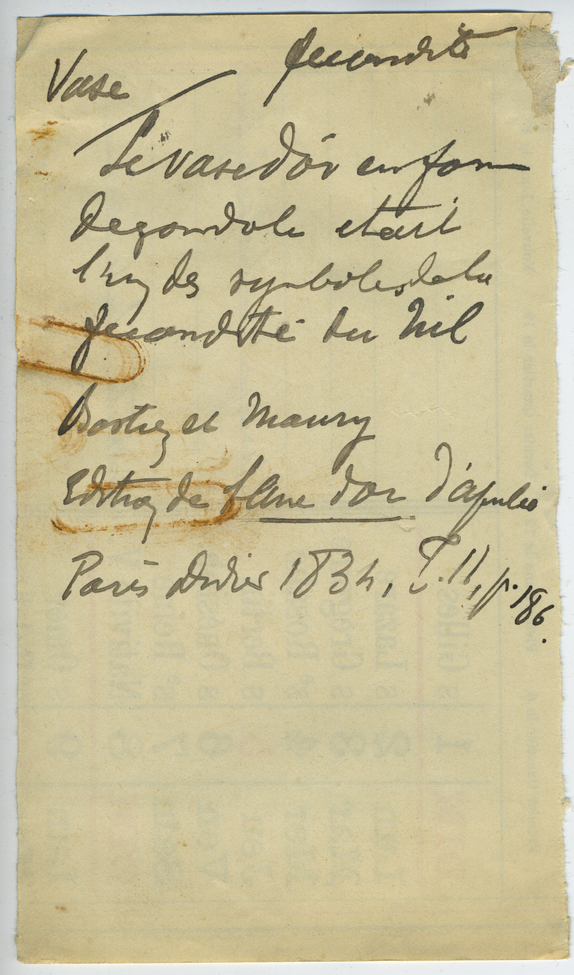 Vase fécondité
Le vase d'or en form
de gondole était
l'un des symboles de la
fécondité du Nil
et Maury
Edition de l'Ane d'or d'Apulée
Paris Didier 1834, T. II, p. 186.